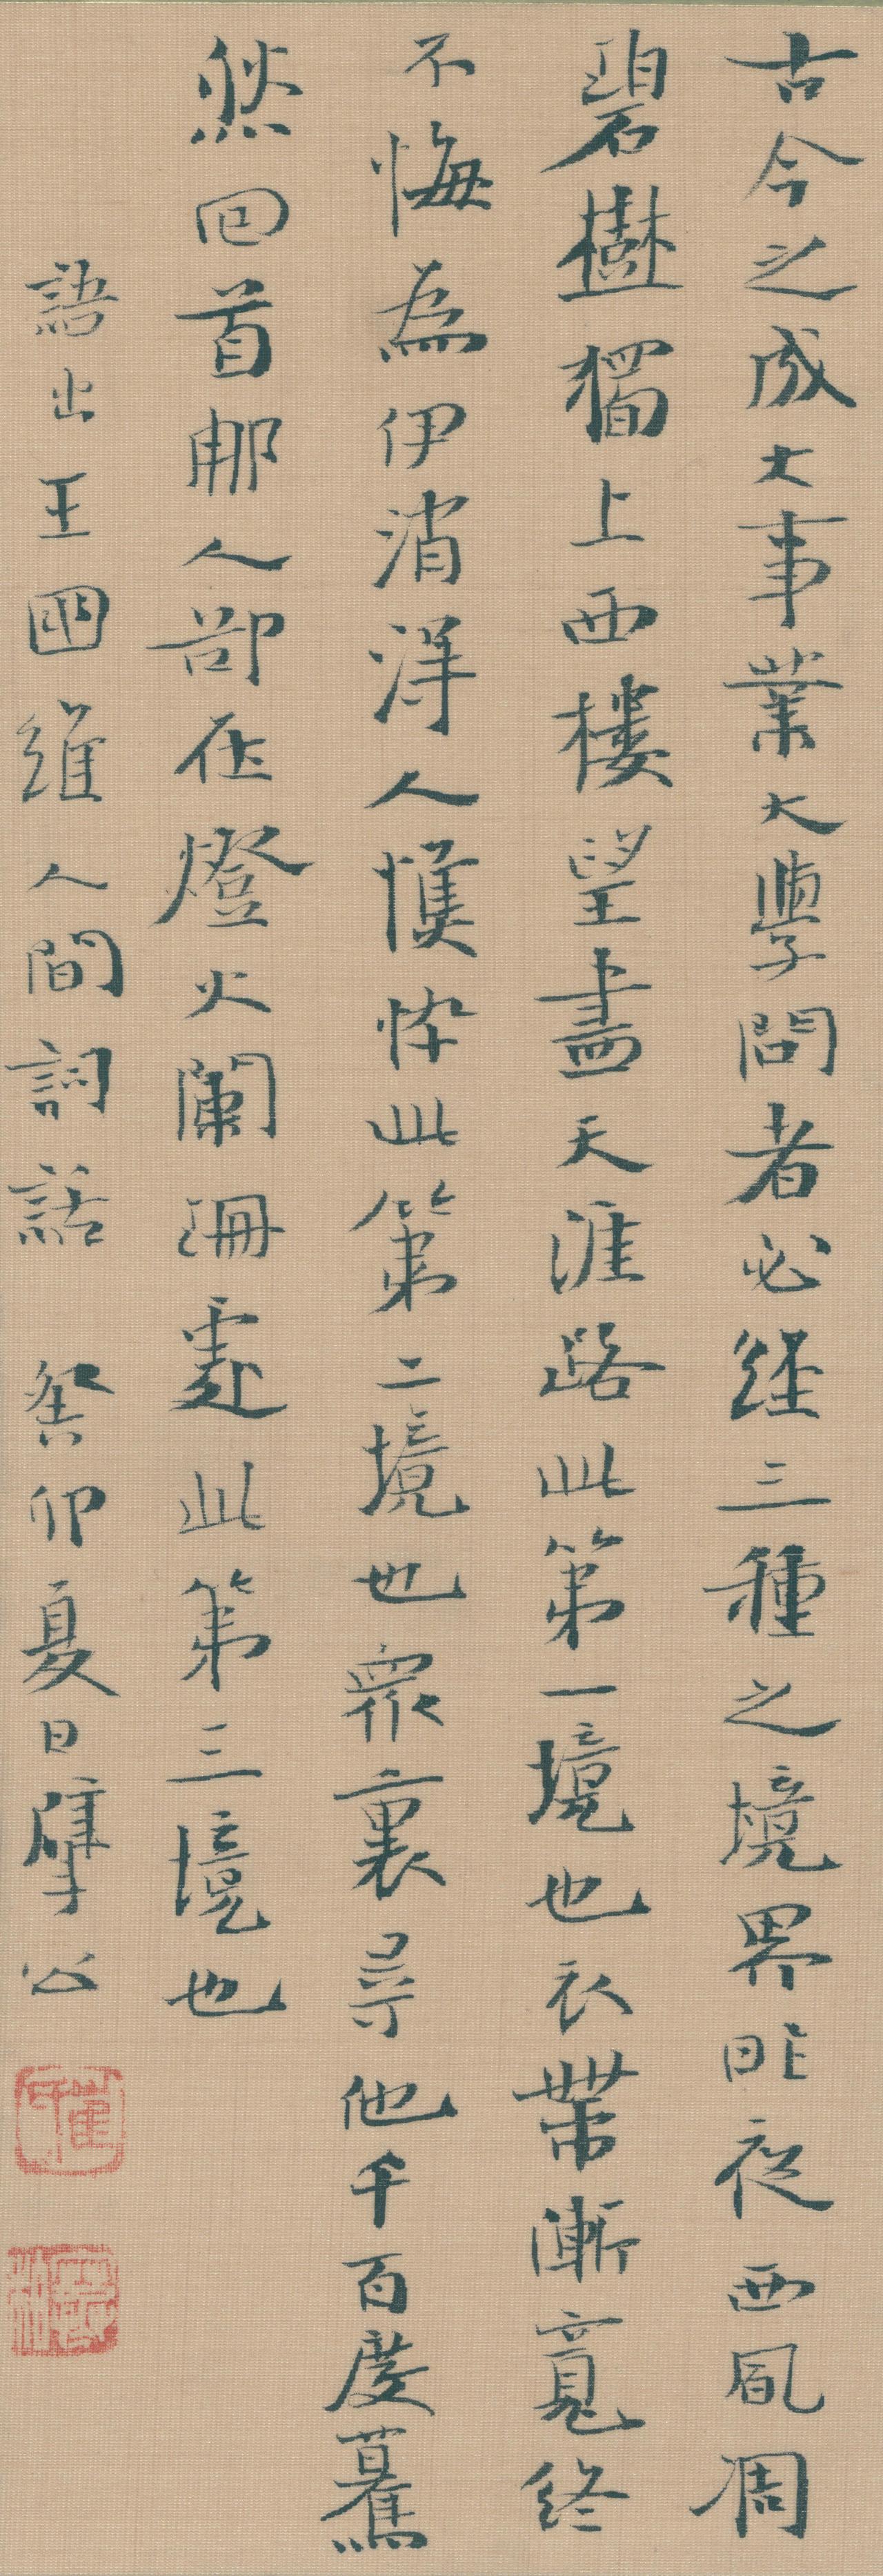 古今之成大事業大學問者必經三種之境界昨夜西風凋
碧樹獨上西樓望盡天涯路此第一境也衣帶漸寬終
不悔為伊消得人憔悴此第二境也眾裏尋他千百度驀
然回首那人卻在燈火闌珊處此第三境也
語出王國維人間詞話 癸卯夏日肇公